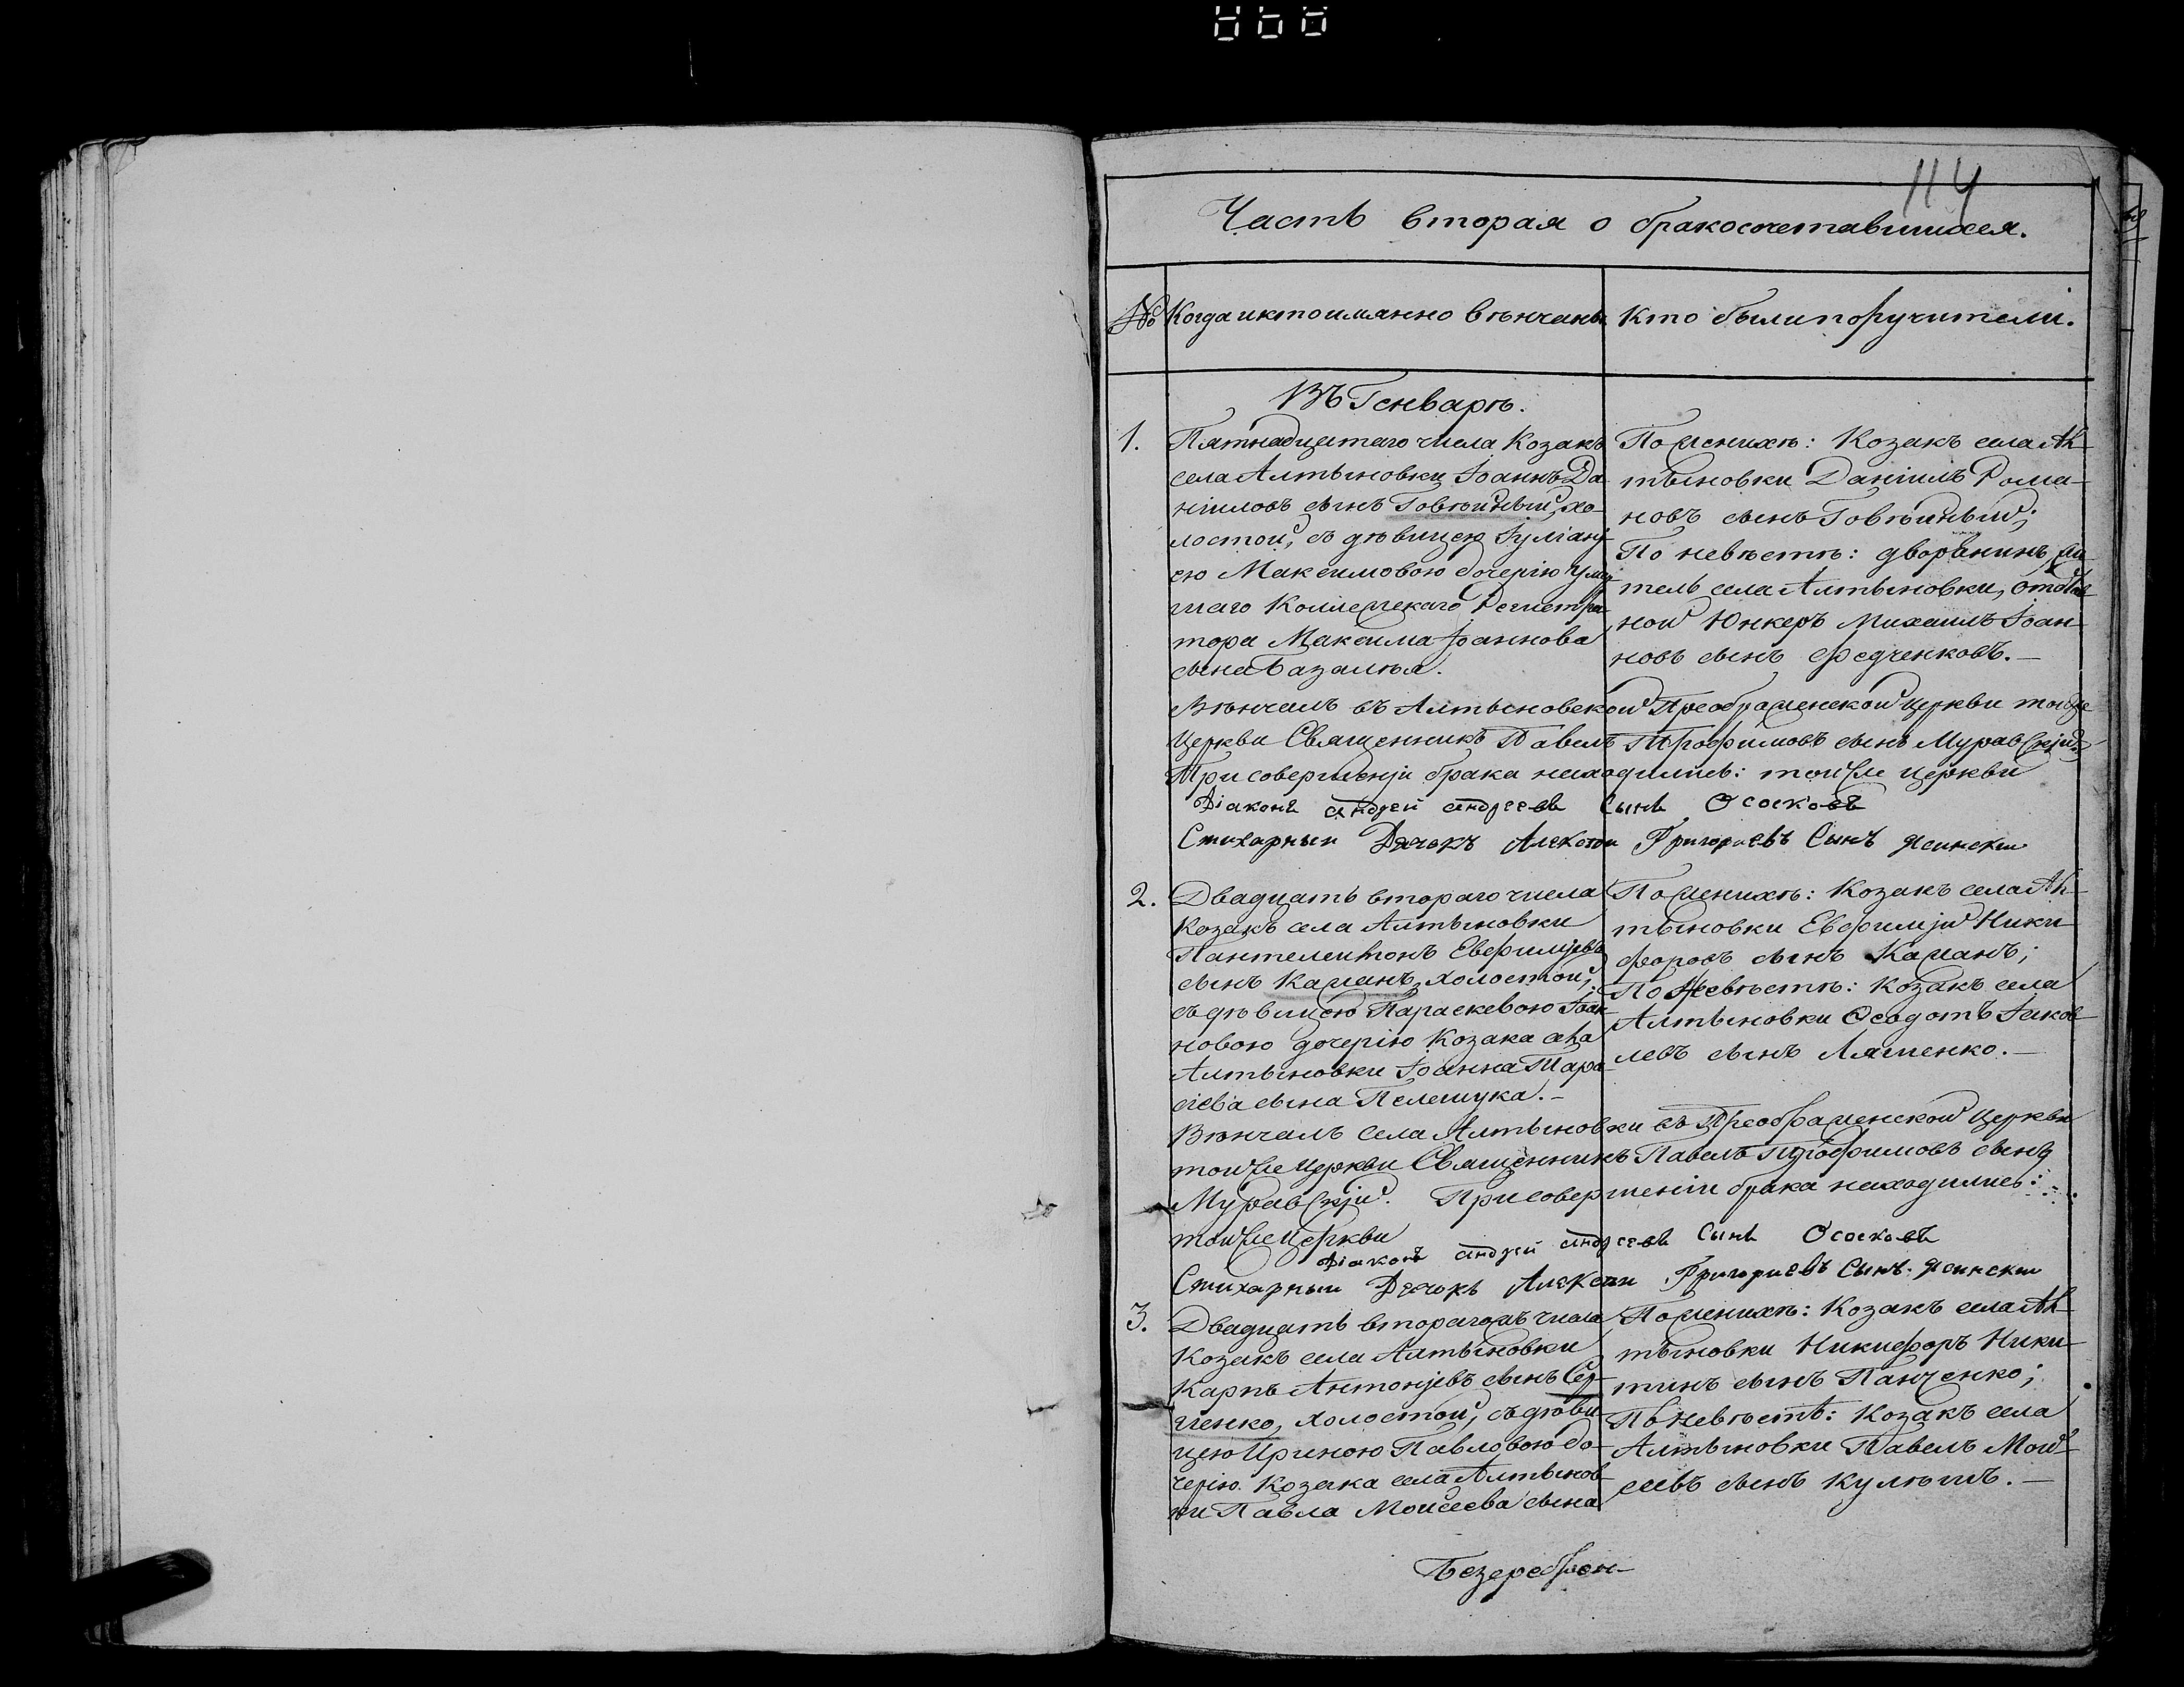 114
Часть вторая о бракосочетавшихся.
№ Когда и кто имянно вѣнчаны Кто были поручители.
Въ Генварѣ.
1.
Пятнадцатаго числа Козакъ
села Алтыновки Іоаннъ Да-
ніиловъ сынъ Говѣйный, хо-
лостой, съ дѣвицею Іуліані-
ею Максимовою дочерію умер-
шаго Коллежскаго Регистра-
тора Максима Іоаннова
сына Базалѣя.
По женихѣ: Козакъ села Ал-
тыновки Даніилъ Рома-
новъ сынъ Говѣйный;
По невѣстѣ: дворянинъ, жи-
тель села Алтыновки, отстав-
ной Юнкеръ Михаилъ Іоан-
новъ сынъ Федченковъ.—
Вѣнчалъ въ Алтыновской Преображенской Церкви тойже
Церкви Священникъ Павелъ Трофимовъ сынъ Муравскій
При совершеніи брака находились: тойже церкви
Діаконъ Андрей Андреевъ Сынъ Ососковъ
Стихарный Дячокъ Алексей Григориевъ Сынъ Ясинский
2.
Двадцать втораго числа
Козакъ села Алтыновки
Пантелеимонъ Евфиміевъ
сынъ Кажанъ, холостой,
съ дѣвицею Параскевою Іоан-
новою дочерію Козака села
Алтыновки Іоанна Тара-
сіева сына Пелешука.—
По женихѣ: Козакъ села Ал-
тыновки Евфимій Ники-
форовъ сынъ Кажанъ;
По Невѣстѣ: Козакъ села
Алтыновки Феодотъ Іаков-
левъ сынъ Ляшенко.—
Вѣнчалъ села Алтыновки въ Преображенской Церкви
тойже Церкви Священникъ Павелъ Трофимовъ сынъ
Муравскій. При совершеніи брака находились:
тойже Церкви
Діаконъ Андрей Андреевъ Сынъ Ососковъ
Стихарный Дячокъ Алексей Григориевъ Сынъ Ясинский
3.
Двадцать втораго жъ числа
Козакъ села Алтыновки
Карпъ Антоніевъ сынъ Сер-
гіенко, холостой, съ дѣви-
цею Ириною Павловою до-
черію Козака села Алтынов-
ки Павла Моисеева сына
По женихѣ: Козакъ села Ал-
тыновки Никифоръ Ники-
тинъ сынъ Панченко;
По невѣстѣ: Козакъ села
Алтыновки Павелъ Мои-
сеевъ сынъ Кулѣшъ.—